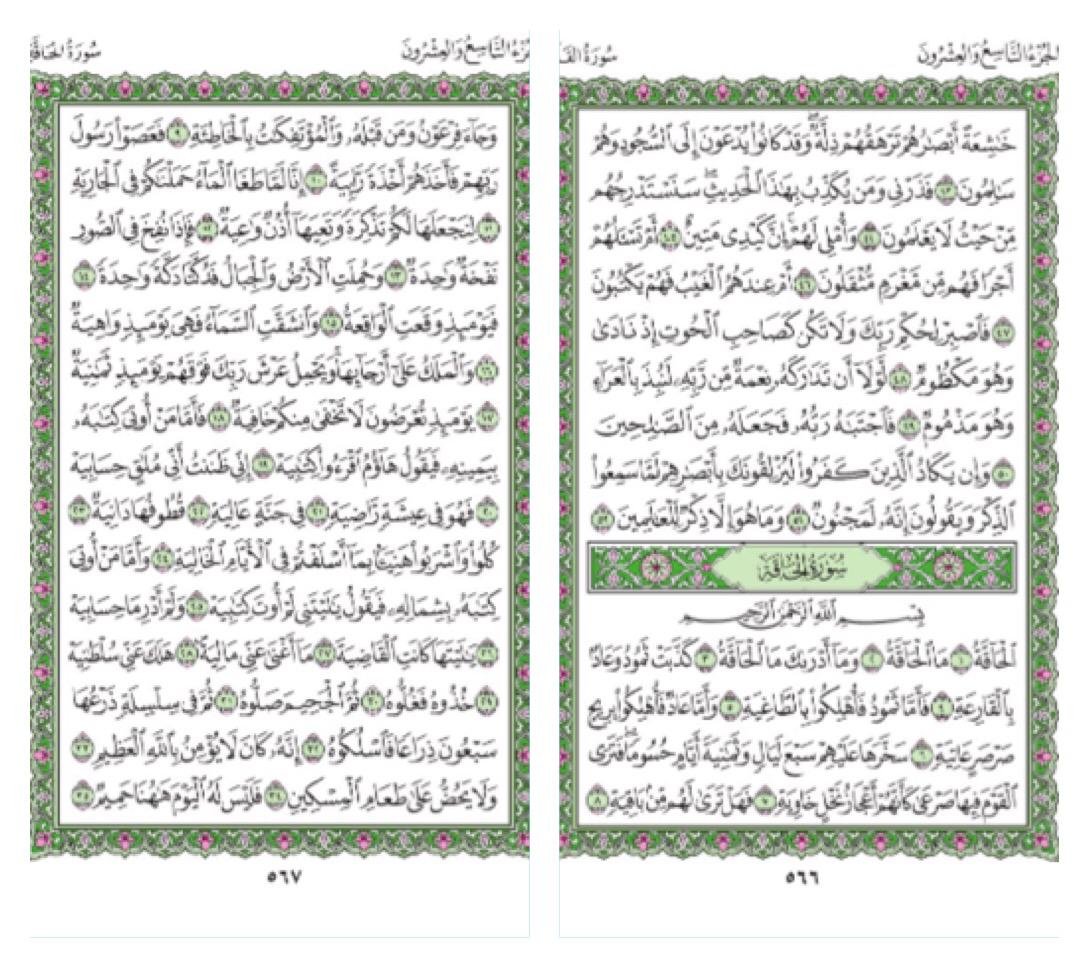 الجزء التاسع والعشرون
سورة القـ
خَٰشِعَةً أَبْصَٰرُهُمْ تَرْهَقُهُمْ ذِلَّةٌ ۖ وَقَدْ كَانُوا۟ يُدْعَوْنَ إِلَى ٱلسُّجُودِ وَهُمْ
سَٰلِمُونَ ٤٣ فَذَرْنِى وَمَن يُكَذِّبُ بِهَٰذَا ٱلْحَدِيثِ ۖ سَنَسْتَدْرِجُهُم
مِّنْ حَيْثُ لَا يَعْلَمُونَ ٤٤ وَأُمْلِى لَهُمْ ۚ إِنَّ كَيْدِى مَتِينٌ ٤٥ أَمْ تَسْـَٔلُهُمْ
أَجْرًا فَهُم مِّن مَّغْرَمٍ مُّثْقَلُونَ ٤٦ أَمْ عِندَهُمُ ٱلْغَيْبُ فَهُمْ يَكْتُبُونَ
٤٧ فَٱصْبِرْ لِحُكْمِ رَبِّكَ وَلَا تَكُن كَصَاحِبِ ٱلْحُوتِ إِذْ نَادَىٰ
وَهُوَ مَكْظُومٌ ٤٨ لَّوْلَآ أَن تَدَٰرَكَهُۥ نِعْمَةٌ مِّن رَّبِّهِۦ لَنُبِذَ بِٱلْعَرَآءِ
وَهُوَ مَذْمُومٌ ٤٩ فَٱجْتَبَٰهُ رَبُّهُۥ فَجَعَلَهُۥ مِنَ ٱلصَّٰلِحِينَ
٥٠ وَإِن يَكَادُ ٱلَّذِينَ كَفَرُوا۟ لَيُزْلِقُونَكَ بِأَبْصَٰرِهِمْ لَمَّا سَمِعُوا۟
ٱلذِّكْرَ وَيَقُولُونَ إِنَّهُۥ لَمَجْنُونٌ ٥١ وَمَا هُوَ إِلَّا ذِكْرٌ لِّلْعَٰلَمِينَ ٥٢
سُورَةُ الْحَاقَّةِ
بِسْمِ ٱللَّهِ ٱلرَّحْمَٰنِ ٱلرَّحِيمِ
ٱلْحَآقَّةُ ١ مَا ٱلْحَآقَّةُ ٢ وَمَآ أَدْرَىٰكَ مَا ٱلْحَآقَّةُ ٣ كَذَّبَتْ ثَمُودُ وَعَادٌۢ
بِٱلْقَارِعَةِ ٤ فَأَمَّا ثَمُودُ فَأُهْلِكُوا۟ بِٱلطَّاغِيَةِ ٥ وَأَمَّا عَادٌ فَأُهْلِكُوا۟ بِرِيحٍ
صَرْصَرٍ عَاتِيَةٍ ٦ سَخَّرَهَا عَلَيْهِمْ سَبْعَ لَيَالٍ وَثَمَٰنِيَةَ أَيَّامٍ حُسُومًا فَتَرَى
ٱلْقَوْمَ فِيهَا صَرْعَىٰ كَأَنَّهُمْ أَعْجَازُ نَخْلٍ خَاوِيَةٍ ٧ فَهَلْ تَرَىٰ لَهُم مِّنۢ بَاقِيَةٍ ٨
٥٦٦
ـزء التاسع والعشرون
سورة الحاقة
وَجَآءَ فِرْعَوْنُ وَمَن قَبْلَهُۥ وَٱلْمُؤْتَفِكَٰتُ بِٱلْخَاطِئَةِ ٩ فَعَصَوْا۟ رَسُولَ
رَبِّهِمْ فَأَخَذَهُمْ أَخْذَةً رَّابِيَةً ١٠ إِنَّا لَمَّا طَغَا ٱلْمَآءُ حَمَلْنَٰكُمْ فِى ٱلْجَارِيَةِ
١١ لِنَجْعَلَهَا لَكُمْ تَذْكِرَةً وَتَعِيَهَآ أُذُنٌ وَٰعِيَةٌ ١٢ فَإِذَا نُفِخَ فِى ٱلصُّورِ
نَفْخَةٌ وَٰحِدَةٌ ١٣ وَحُمِلَتِ ٱلْأَرْضُ وَٱلْجِبَالُ فَدُكَّتَا دَكَّةً وَٰحِدَةً ١٤
فَيَوْمَئِذٍ وَقَعَتِ ٱلْوَاقِعَةُ ١٥ وَٱنشَقَّتِ ٱلسَّمَآءُ فَهِىَ يَوْمَئِذٍ وَاهِيَةٌ
١٦ وَٱلْمَلَكُ عَلَىٰٓ أَرْجَآئِهَا ۚ وَيَحْمِلُ عَرْشَ رَبِّكَ فَوْقَهُمْ يَوْمَئِذٍ ثَمَٰنِيَةٌ
١٧ يَوْمَئِذٍ تُعْرَضُونَ لَا تَخْفَىٰ مِنكُمْ خَافِيَةٌ ١٨ فَأَمَّا مَنْ أُوتِىَ كِتَٰبَهُۥ
بِيَمِينِهِۦ فَيَقُولُ هَآؤُمُ ٱقْرَءُوا۟ كِتَٰبِيَهْ ١٩ إِنِّى ظَنَنتُ أَنِّى مُلَٰقٍ حِسَابِيَهْ
٢٠ فَهُوَ فِى عِيشَةٍ رَّاضِيَةٍ ٢١ فِى جَنَّةٍ عَالِيَةٍ ٢٢ قُطُوفُهَا دَانِيَةٌ ٢٣
كُلُوا۟ وَٱشْرَبُوا۟ هَنِيٓـًٔۢا بِمَآ أَسْلَفْتُمْ فِى ٱلْأَيَّامِ ٱلْخَالِيَةِ ٢٤ وَأَمَّا مَنْ أُوتِىَ
كِتَٰبَهُۥ بِشِمَالِهِۦ فَيَقُولُ يَٰلَيْتَنِى لَمْ أُوتَ كِتَٰبِيَهْ ٢٥ وَلَمْ أَدْرِ مَا حِسَابِيَهْ
٢٦ يَٰلَيْتَهَا كَانَتِ ٱلْقَاضِيَةَ ٢٧ مَآ أَغْنَىٰ عَنِّى مَالِيَهْ ٢٨ هَلَكَ عَنِّى سُلْطَٰنِيَهْ
٢٩ خُذُوهُ فَغُلُّوهُ ٣٠ ثُمَّ ٱلْجَحِيمَ صَلُّوهُ ٣١ ثُمَّ فِى سِلْسِلَةٍ ذَرْعُهَا
سَبْعُونَ ذِرَاعًا فَٱسْلُكُوهُ ٣٢ إِنَّهُۥ كَانَ لَا يُؤْمِنُ بِٱللَّهِ ٱلْعَظِيمِ ٣٣
وَلَا يَحُضُّ عَلَىٰ طَعَامِ ٱلْمِسْكِينِ ٣٤ فَلَيْسَ لَهُ ٱلْيَوْمَ هَٰهُنَا حَمِيمٌ ٣٥
٥٦٧